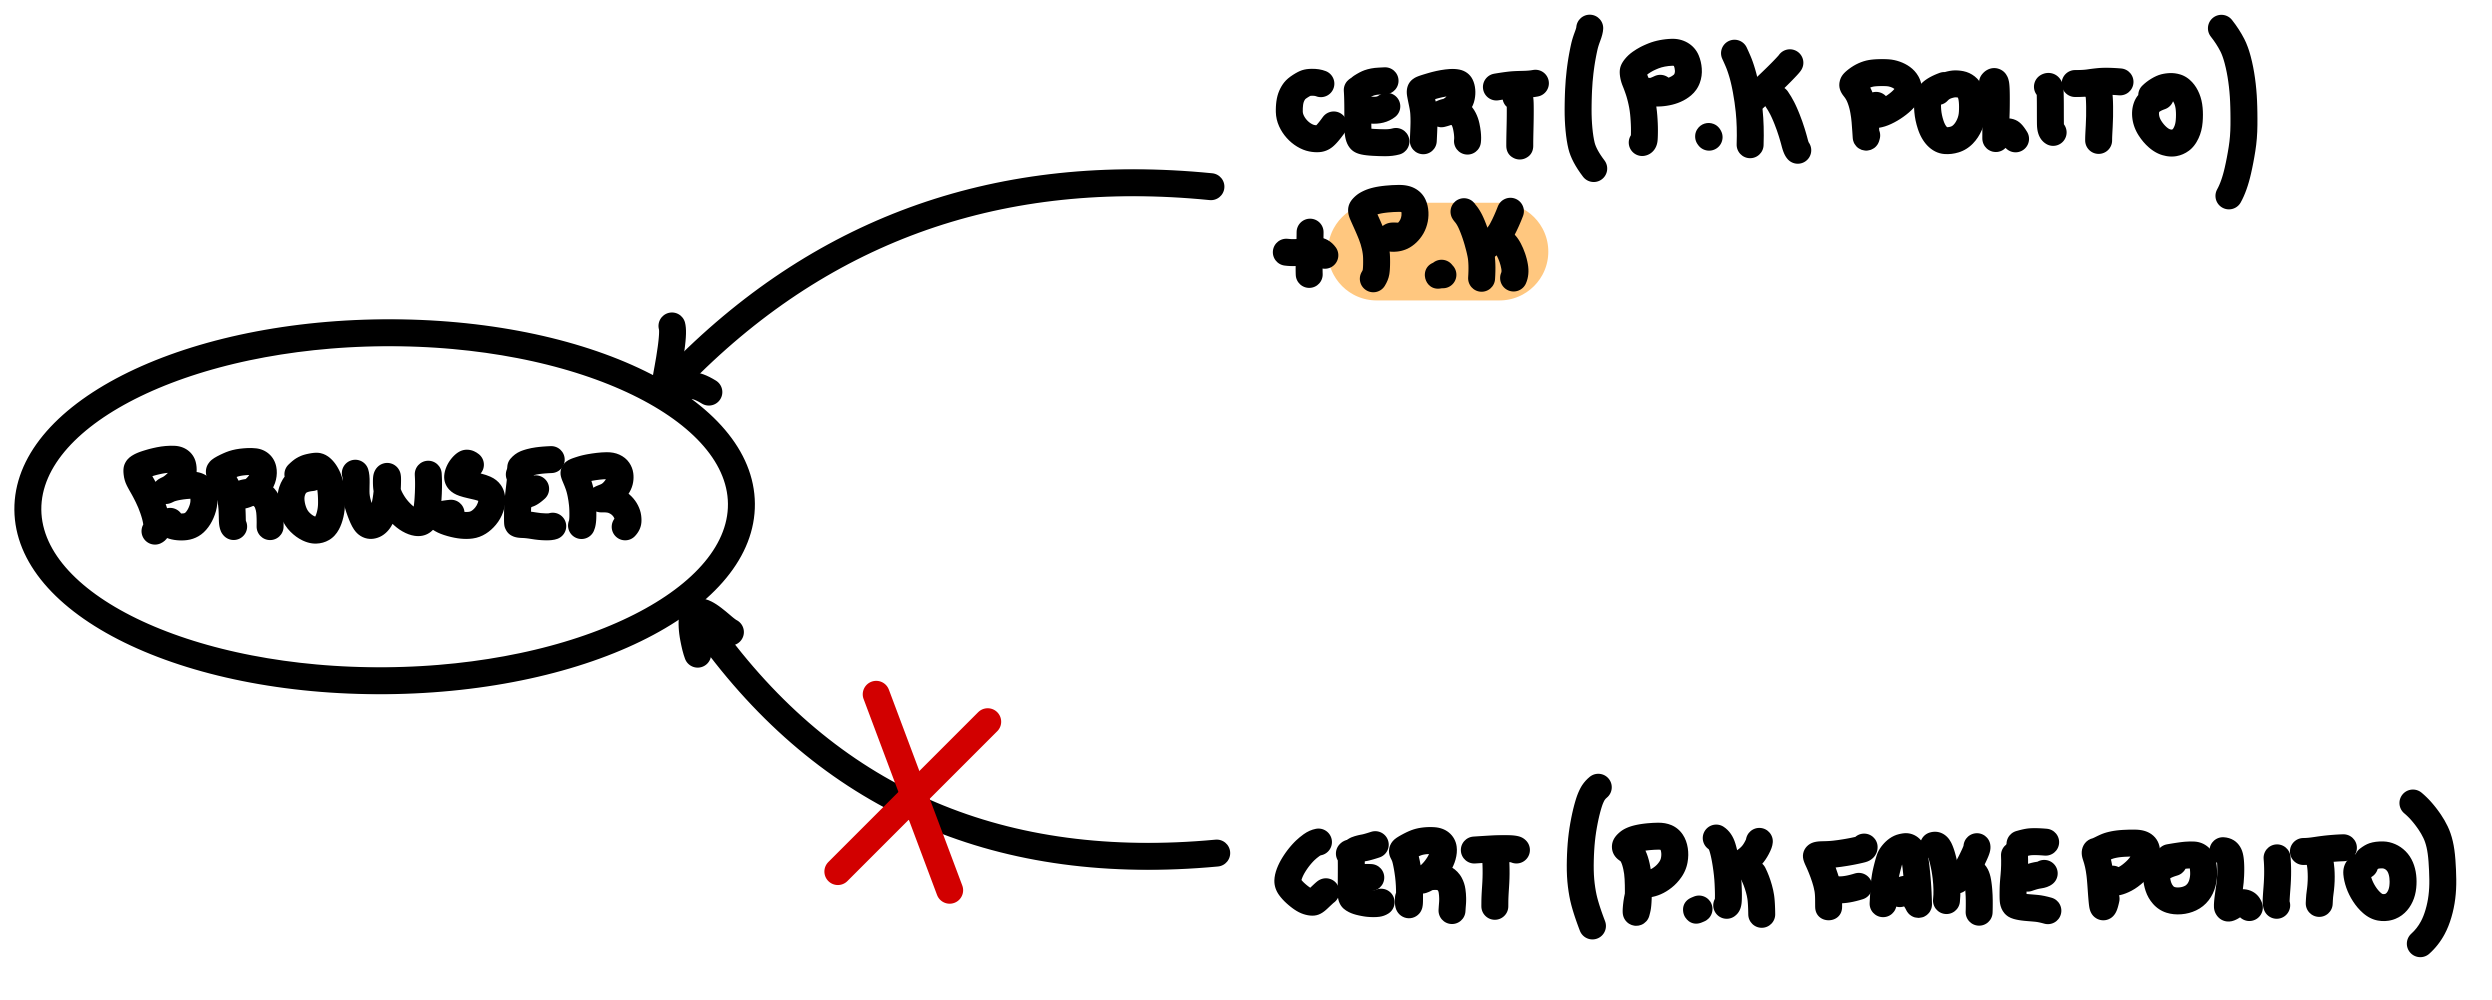 CERT(P.K POLITO)
+ P.K
BROWSER
CERT (P.K FAKE POLITO)